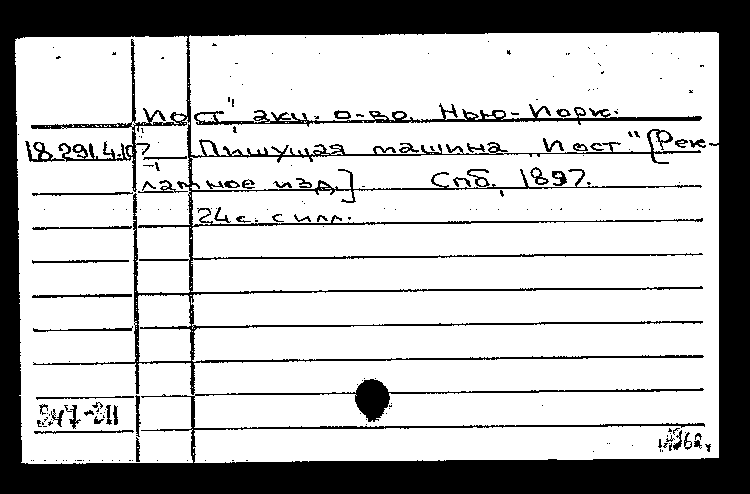 „Йост" акц. о-во. Нью-Йорк.
18.291.4.107 Пишущая машина „Йост" [Рек-
ламное изд.] Спб., 1897.
24 с. с илл.